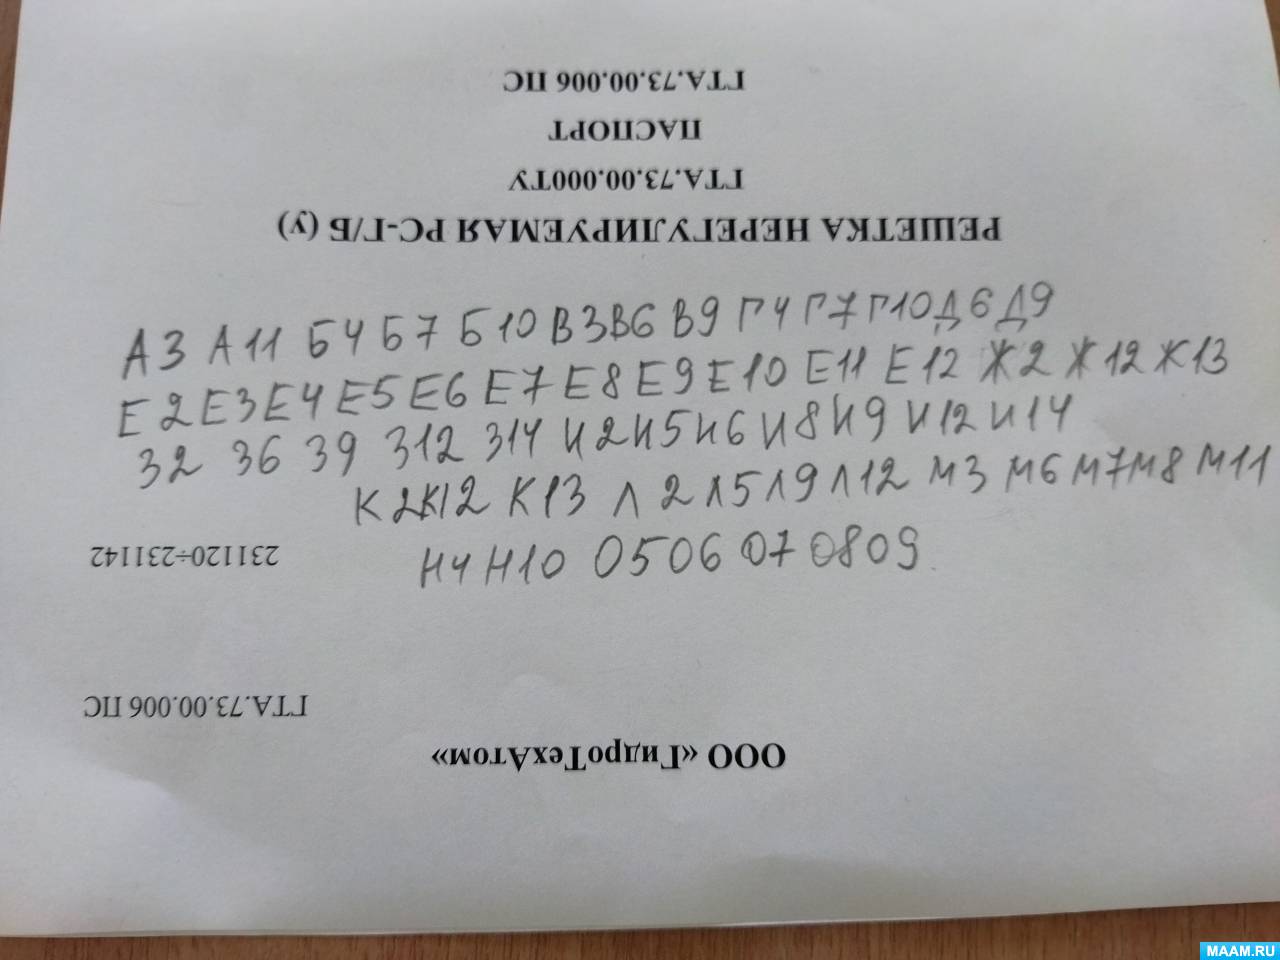 ГТА.73.00.006 ПС
ПАСПОРТ
ГТА.73.00.000ТУ
РЕШЕТКА НЕРЕГУЛИРУЕМАЯ РС-Г/Б (у)
А3 А11 Б4 Б7 Б10 В3 В6 В9 Г4 Г7 Г10 Д6 Д9
Е2 Е3 Е4 Е5 Е6 Е7 Е8 Е9 Е10 Е11 Е12 Ж2 Ж12 Ж13
З2 З6 З9 З12 З14 И2 И5 И6 И8 И9 И12 И14
К2 К12 К13 Л2 Л5 Л9 Л12 М3 М6 М7 М8 М11
Н4 Н10 О5 О6 О7 О8 О9
231120÷231142
ГТА.73.00.006 ПС
ООО «ГидроТехАтом»
MAAM.RU